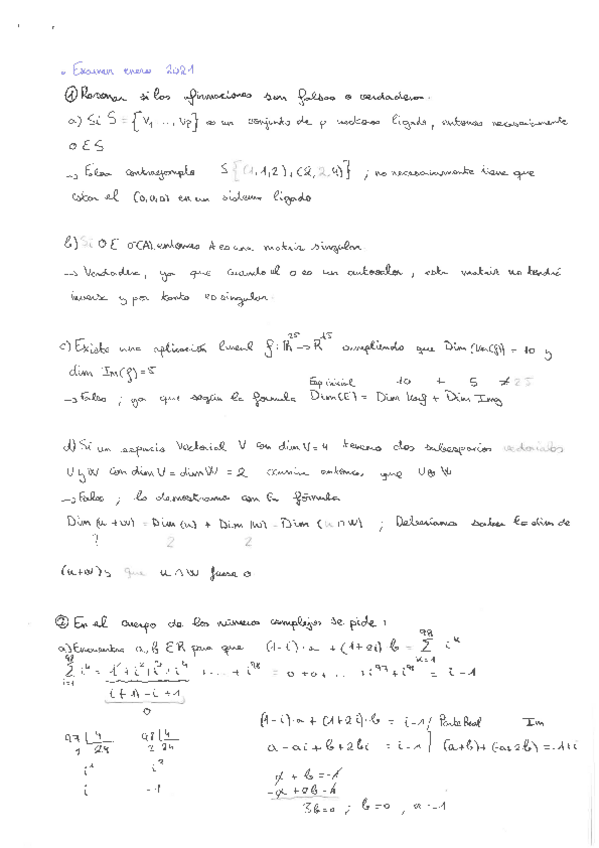 • Examen enero 2021
① Razonar si las afirmaciones son falsas o verdaderas.
a) Si S = {V₁ ..., Vp} es un conjunto de p vectores ligado, entonces necesariamente
0 ∈ S
→ Falsa contraejemplo S{(1,1,2), (2,2,4)} ; no necesariamente tiene que
estar el (0,0,0) en un sistema ligado
b) Si 0 ∈ σ(A), entonces A es una matriz singular
→ Verdadera, ya que cuando el 0 es un autovalor, esta matriz no tendrá
inversa y por tanto es singular.
c) Existe una aplicación lineal f: R²⁵ → R¹⁵ cumpliendo que Dim (Ker(f)) = 10 y
dim Im(f) = 5
Esp inicial 10 + 5 ≠ 25
→ Falso ; ya que según la formula Dim(E) = Dim Ker f + Dim Img
d) Si un espacio Vectorial V con dim V = 4 tenemos dos subespacios vectoriales
U y W con dim U = dim W = 2 entonces, que U⊕W
→ Falso ; lo demostramos con la fórmula
Dim (u + w) = Dim (u) + Dim (w) - Dim (u ∩ w) ; Deberíamos saber la dim de
? 2 2
(u+w) y que u ∩ w fuese 0
② En el cuerpo de los números complejos se pide :
a) Encuentra a, b ∈ R para que (1-i)·a + (1+2i) b = Σ⁹⁸ₖ₌₁ iᵏ
Σ⁹⁸ᵢ₌₁ iᵏ = i¹+i²+i³+i⁴ + ... + i⁹⁸ = 0+0+ ... + i⁹⁷+i⁹⁸ = i-1
i+(-1)-i+1
0
(1-i)·a + (1+2i)·b = i-1 / Parte Real Im
97 | 4 98 | 4
1 24 2 24
a - ai + b + 2bi = i-1 | (a+b)+(-a+2b) = -1+i
i¹ i²
i -1
a + b = -1
-a + 2b = 1
3b = 0 ; b = 0, a = -1